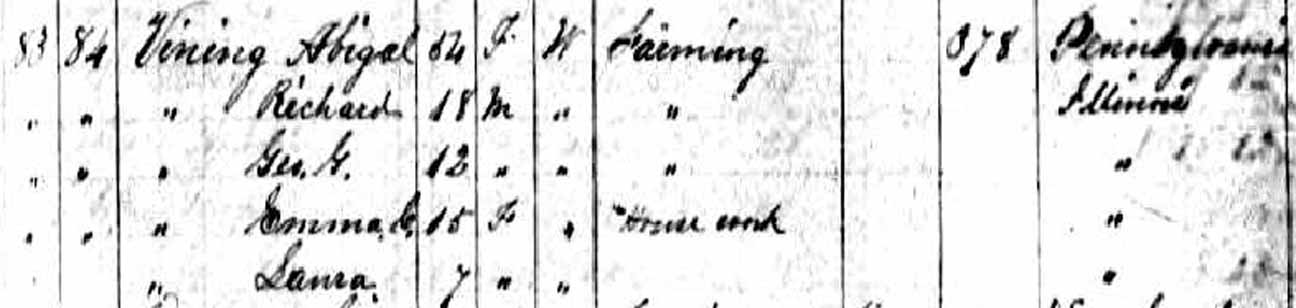 83 84 Vining Abigal 54 F W Farming 878 Pennsylvania
" " " Richard 18 M " " Illinois
" " " Geo. G. 12 " " " "
" " " Emma, C. 15 F " House work "
" Laura 7 " " "